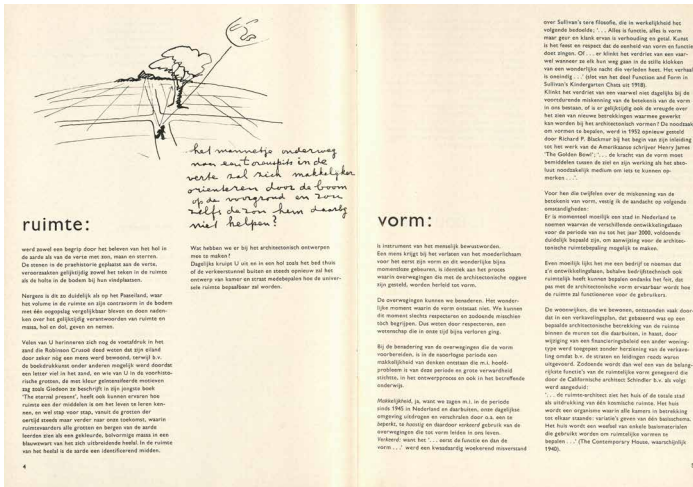 het mannetje onderweg
naar een torenspits in de
verte zal zich makkelijker
oriënteren door de boom
op de voorgrond en zou
zelfs de zon hem daarbij
niet helpen?
ruimte:
werd zowel een begrip door het beleven van het hol in
de aarde als van de verte met zon, maan en sterren.
De stenen in de praehistorie geplaatst aan de verte,
veroorzaakten gelijktijdig zowel het teken in de ruimte
als de holte in de bodem bij hun vindplaatsen.
Nergens is dit zo duidelijk als op het Paaseiland, waar
het volume in de ruimte en zijn contravorm in de bodem
met één oogopslag vergelijkbaar bleven en doen naden-
ken over het gelijktijdig verantwoorden van ruimte en
massa, hol en dol, geven en nemen.
Velen van U herinneren zich nog de voetafdruk in het
zand die Robinson Crusoë deed weten dat zijn eiland
door zeker nog een mens werd bewoond, terwijl b.v.
de boekdrukkunst onder anderen mogelijk werd doordat
een letter viel in het zand, en wie van U in de voorhisto-
rische grotten, de met kleur geïmiteerde motieven
zag zoals Giedion ze beschrijft in zijn jongste boek
'The eternal present', heeft ook kunnen ervaren hoe
ruimte een der middelen is om het leven te leren ken-
nen, en wel stap voor stap, vanuit de grotten der
oertijd steeds maar verder naar onze toekomst, waarin
ruimtevaarders alle grotten en bergen van de aarde
leerden zien als een gekleurde, bolvormige massa in een
blauwzwart van het zich uitbreidende heelal. In de ruimte
van het heelal is de aarde een identificerend midden.
4
Wat hebben we er bij het architectonisch ontwerpen
mee te maken?
Dagelijks kruipt U en in een hol zoals het bed thuis
of de verkeerstunnel buiten en steeds opnieuw zal het
ontwerp van kamer en straat medebepalen hoe de univer-
sele ruimte bepaalbaar zal worden.
vorm:
is instrument van het menselijk bewustworden.
Een mens krijgt bij het verlaten van het moederlichaam
voor het eerst zijn vorm en dit wonderlijke bijna
momentloze gebeuren, is identiek aan het proces
waarin overwegingen die met de architectonische opgave
zijn gesteld, worden herleid tot vorm.
De overwegingen kunnen we benaderen. Het wonder-
lijke moment waarin de vorm ontstaat niet. We kunnen
dit moment slechts respecteren en zodoende misschien
tóch begrijpen. Dus weten door respecteren, een
wetenschap die in onze tijd bijna verloren ging.
Bij de benadering van de overwegingen die de vorm
voorbereiden, is in de naoorlogse periode een
makkelijkheid van denken ontstaan die m.i. hoofd-
probleem is van deze periode en grote verwardheid
stichtte, in het ontwerpproces en ook in het betreffende
onderwijs.
Makkelijkheid, ja, want we zagen m.i. in de periode
sinds 1945 in Nederland en daarbuiten, onze dagelijkse
omgeving uitdrogen en verschralen door o.a. een te
beperkt, te haastig en daardoor verkeerd gebruik van de
overwegingen die tot vorm leiden in ons leven.
Verkeerd: want het '. . . eerst de functie en dan de
vorm . . .' werd een kwaadaardig woekerend misverstand
over Sullivan's tere filosofie, die in werkelijkheid het
volgende bedoelde; '. . . Alles is functie, alles is vorm
maar geur en klank ervan is verhouding en getal. Kunst
is het feest en respect dat de eenheid van vorm en functie
doet zingen. Of . . . er klinkt het verdriet van een vaar-
wel wanneer ze elk hun weg gaan in de stille klokken
van een wonderlijke nacht die verleden heet. Het verhaal
is oneindig . . .' (slot van het deel Function and Form in
Sullivan's Kindergarten Chats uit 1918).
Klinkt het verdriet van een vaarwel niet dagelijks bij de
voortdurende miskenning van de betekenis van de vorm
in ons bestaan, of is er gelijktijdig ook de vreugde over
het zien van nieuwe betrekkingen waarmee gewerkt
kan worden bij het architectonisch vormen? De noodzaak
om vormen te bepalen, werd in 1952 opnieuw gesteld
door Richard P. Blackmur bij het begin van zijn inleiding
tot het werk van de Amerikaanse schrijver Henry James
'The Golden Bowl'; '. . . de kracht van de vorm moet
bemiddelen tussen de ziel en zijn werking als het abso-
luut noodzakelijk medium om iets te kunnen op-
merken . . .'.
Voor hen die twijfelen over de miskenning van de
betekenis van vorm, vestig ik de aandacht op volgende
omstandigheden:
Er is momenteel moeilijk een stad in Nederland te
noemen waarvan de verschillende ontwikkelingsfasen
voor de periode van nu tot het jaar 2000, voldoende
duidelijk bepaald zijn, om aanwijzing voor de architec-
tonische ruimtebepaling mogelijk te maken.
Even moeilijk lijkt het me een bedrijf te noemen dat
z'n ontwikkelingsfasen, behalve bedrijfstechnisch ook
ruimtelijk heeft kunnen bepalen ondanks het feit, dat
pas met de architectonische vorm ervaarbaar wordt hoe
de ruimte zal functioneren voor de gebruikers.
De woonwijken, die we bewonen, ontstonden vaak door-
dat in een verkavelingsplan, dat gebaseerd was op een
bepaalde architectonische betrekking van de ruimte
binnen de muren tot die daarbuiten, in haast, door
wijziging van een financieringsbeleid een ander woning-
type werd toegepast zonder herziening van de verkave-
ling omdat b.v. de straten en leidingen reeds waren
uitgevoerd. Zodoende wordt dan wel een van de belang-
rijkste functie's van de ruimtelijke vorm genegeerd die
door de Californische architect Schindler b.v. als volgt
werd aangeduid:
'. . . de ruimte-architect ziet het huis of de totale stad
als uitdrukking van één kosmische ruimte. Het huis
wordt een organisme waarin alle kamers in betrekking
tot elkaar staande: variatie's geven van één basisthema.
Het huis wordt een weefsel van enkele basismaterialen
die gebruikt worden om ruimtelijke vormen te
bepalen . . .' (The Contemporary House, waarschijnlijk
1940).